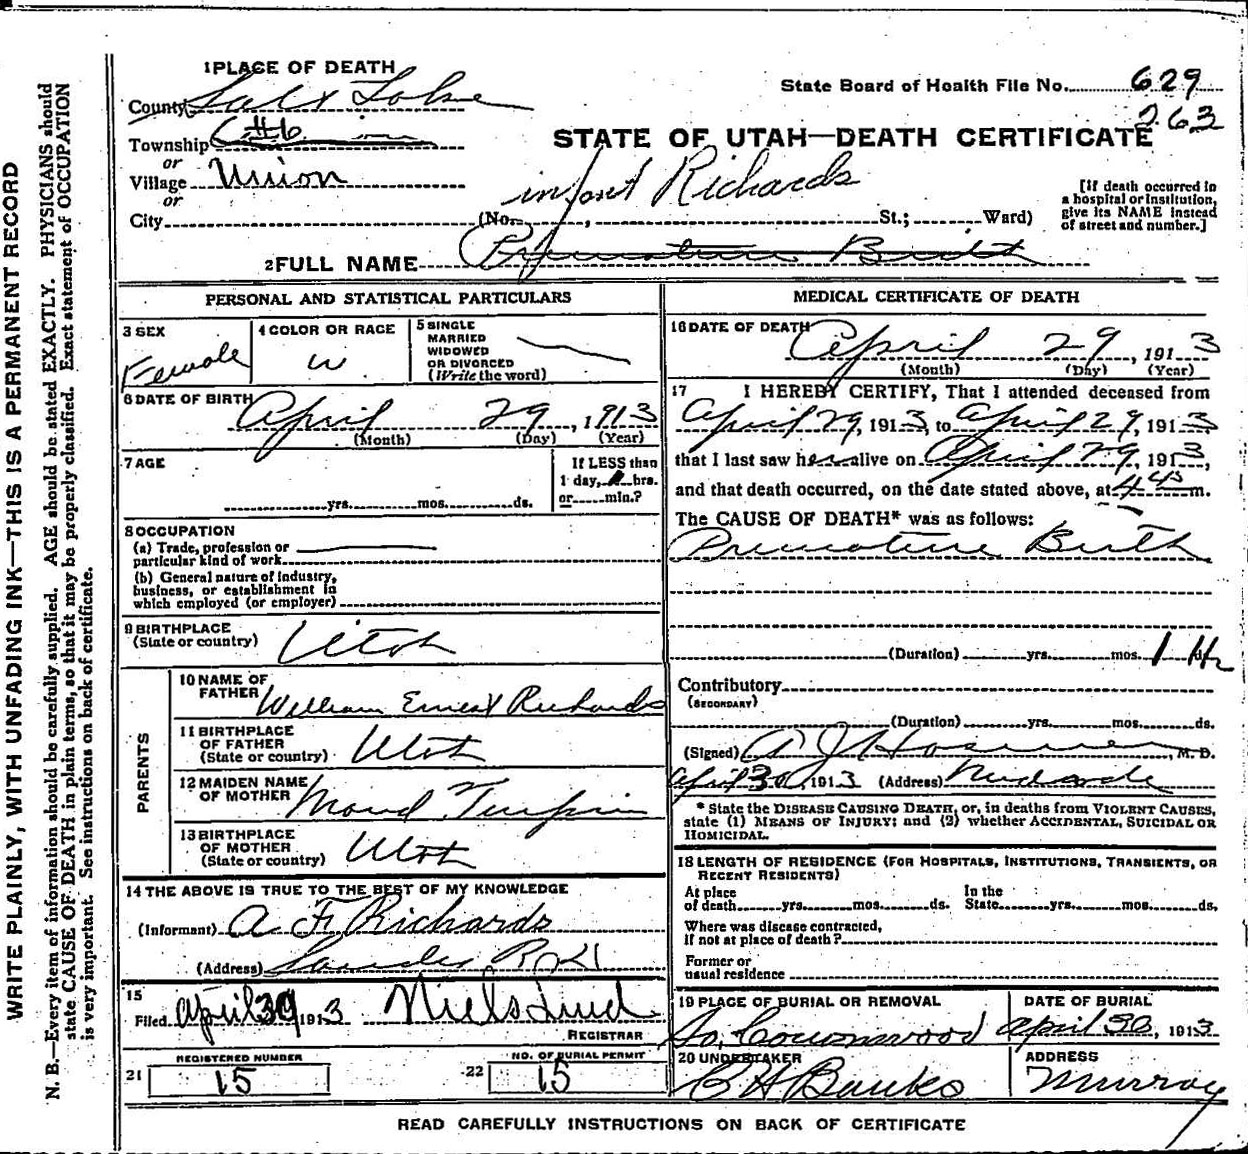 1 PLACE OF DEATH
County Salt Lake
State Board of Health File No. 629
263
Township
or
Village Union
or
City
STATE OF UTAH—DEATH CERTIFICATE
infant Richards
(No. , St.; Ward)
[If death occurred in
a hospital or institution,
give its NAME instead
of street and number.]
2 FULL NAME Premature Birth
PERSONAL AND STATISTICAL PARTICULARS
3 SEX
Female
4 COLOR OR RACE
W
5 SINGLE
MARRIED
WIDOWED
OR DIVORCED
(Write the word)
6 DATE OF BIRTH
April 29, 1913
(Month) (Day) (Year)
7 AGE
yrs. mos. ds.
If LESS than
1 day, hrs.
or min.?
8 OCCUPATION
(a) Trade, profession or
particular kind of work
(b) General nature of industry,
business, or establishment in
which employed (or employer)
9 BIRTHPLACE
(State or country) Utah
PARENTS
10 NAME OF
FATHER William Ernest Richards
11 BIRTHPLACE
OF FATHER
(State or country) Utah
12 MAIDEN NAME
OF MOTHER Maud Turpin
13 BIRTHPLACE
OF MOTHER
(State or country) Utah
14 THE ABOVE IS TRUE TO THE BEST OF MY KNOWLEDGE
(Informant) A F Richards
(Address) Sandy
15
Filed April 30 1913 Niels Lind
REGISTRAR
REGISTERED NUMBER
21 15
NO. OF BURIAL PERMIT
22 15
MEDICAL CERTIFICATE OF DEATH
16 DATE OF DEATH
April 29, 1913
(Month) (Day) (Year)
17 I HEREBY CERTIFY, That I attended deceased from
April 29, 1913, to April 29, 1913,
that I last saw her alive on April 29, 1913,
and that death occurred, on the date stated above, at 4 45 m.
The CAUSE OF DEATH* was as follows:
Premature Birth
(Duration) yrs. mos. 1 H ds.
Contributory
(SECONDARY)
(Duration) yrs. mos. ds.
(Signed) A J Hosmer, M. D.
April 30, 1913 (Address) Midvale
* State the DISEASE CAUSING DEATH, or, in deaths from VIOLENT CAUSES,
state (1) MEANS OF INJURY; and (2) whether ACCIDENTAL, SUICIDAL OR
HOMICIDAL.
18 LENGTH OF RESIDENCE (FOR HOSPITALS, INSTITUTIONS, TRANSIENTS, OR
RECENT RESIDENTS)
At place
of death yrs. mos. ds.
In the
State yrs. mos. ds.
Where was disease contracted,
if not at place of death?
Former or
usual residence
19 PLACE OF BURIAL OR REMOVAL
So. Cottonwood
DATE OF BURIAL
April 30, 1913
20 UNDERTAKER
Banks
ADDRESS
Murray
READ CAREFULLY INSTRUCTIONS ON BACK OF CERTIFICATE
WRITE PLAINLY, WITH UNFADING INK—THIS IS A PERMANENT RECORD
N. B.—Every item of information should be carefully supplied. AGE should be stated EXACTLY. PHYSICIANS should
state CAUSE OF DEATH in plain terms, so that it may be properly classified. Exact statement of OCCUPATION
is very important. See instructions on back of certificate.